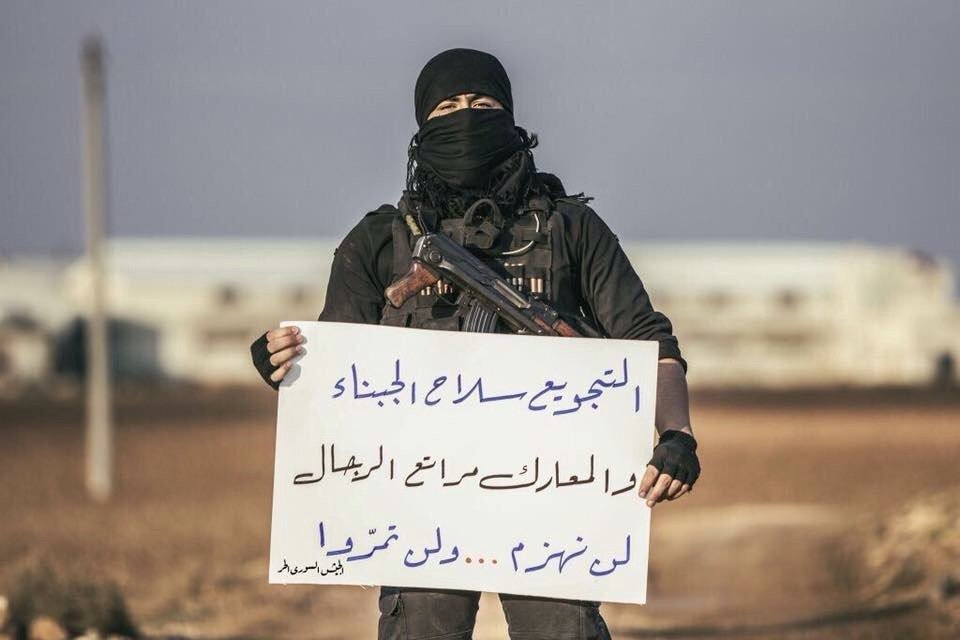 التجويع سلاح الجبناء
والمعارك مراتع الرجال
لن نهزم ... ولن تمرّوا
الجيش السوري الحر